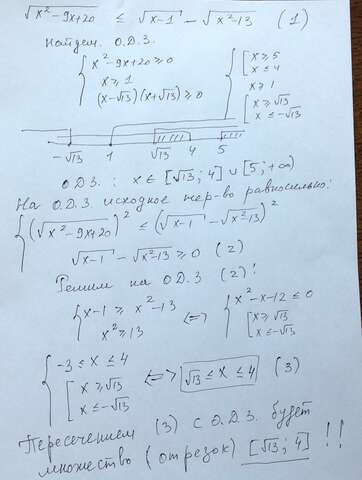 √x²-9x+20 ≤ √x-1 - √x²-13 (1)
Найдем О.Д.З.
{ x²-9x+20 ≥ 0 { [ x ≥ 5
x ≥ 1 x ≤ 4
(x-√13)(x+√13) ≥ 0 x ≥ 1
[ x ≥ √13
x ≤ -√13
-√13 1 √13 4 5
О.Д.З.: x ∈ [√13; 4] ∪ [5; +∞)
На О.Д.З исходное нер-во равносильно:
{ (√x²-9x+20)² ≤ (√x-1 - √x²-13)²
√x-1 - √x²-13 ≥ 0 (2)
Решим на О.Д.З (2)!
{ x-1 ≥ x²-13 <=> { x²-x-12 ≤ 0
x² ≥ 13 [ x ≥ √13
x ≤ -√13
{ -3 ≤ x ≤ 4
[ x ≥ √13 <=> √13 ≤ x ≤ 4 (3)
x ≤ -√13
Пересечением (3) с О.Д.З. будет
множество (отрезок) [√13; 4] !!